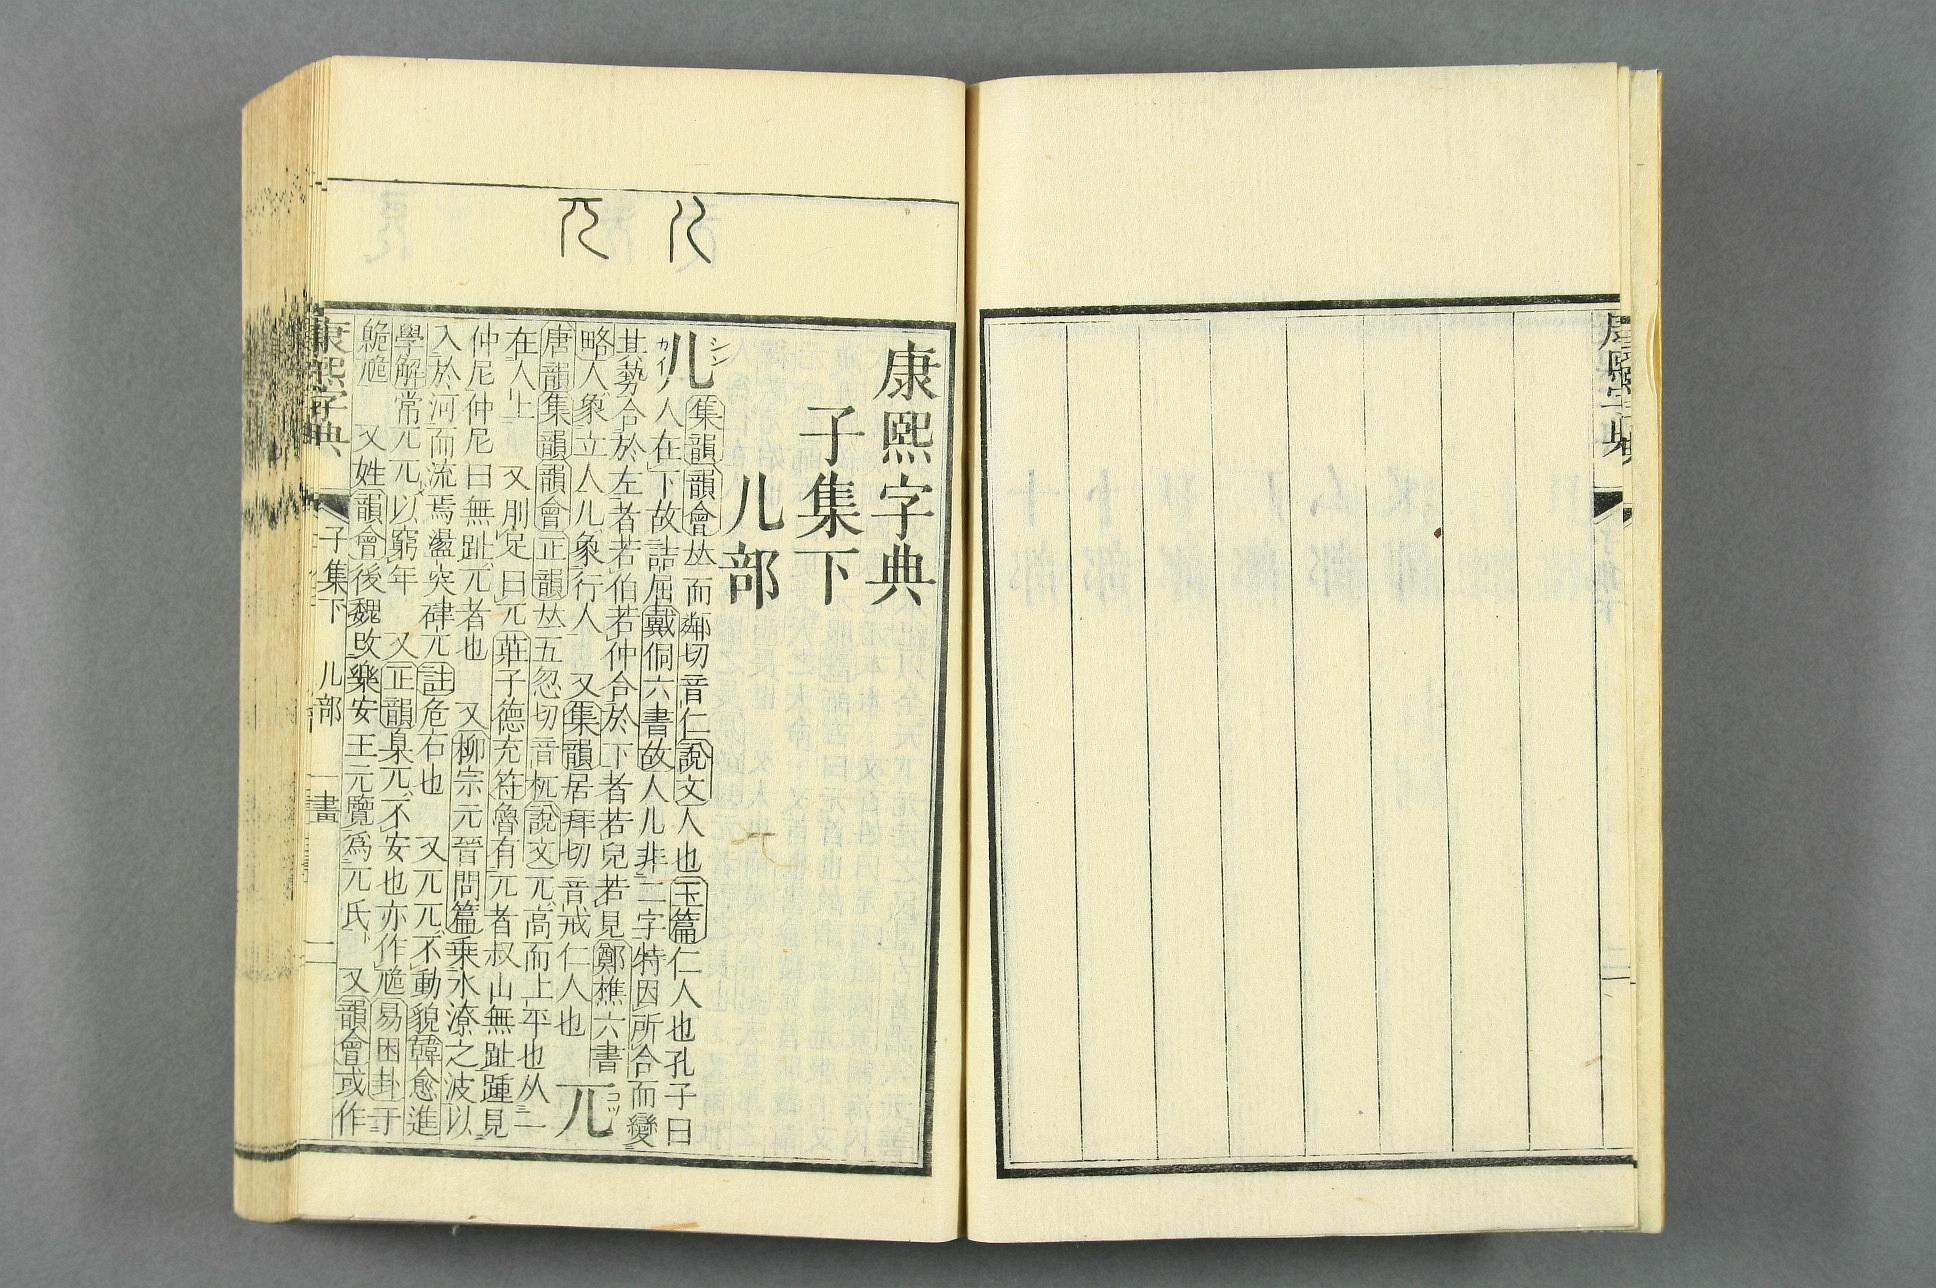 康熙字典
康熙字典
子集下
儿部
儿シンカイ集韻韻會𠀤而鄰切音仁說文人也玉篇仁人也孔子曰
人在下故詰屈戴侗六書故人儿非二字特因所合而變
其勢合於左者若伯若仲合於下者若兒若見鄭樵六書
略人象立人儿象行人 又集韻居拜切音戒仁人也 兀コツ
唐韻集韻韻會正韻𠀤五忽切音杌說文兀高而上平也从一
在人上 又刖足曰兀莊子德充符魯有兀者叔山無趾踵見
仲尼仲尼曰無趾兀者也 又柳宗元晉問篇乗水潦之波以
入於河而流焉盪突硉兀註危石也 又兀兀不動貌韓愈進
學解常兀兀以窮年 又正韻臬兀不安也亦作卼易困卦于
臲卼 又姓韻會後魏改樂安王元覽爲兀氏 又韻會或作
康熙字典 子集下 儿部 一畫 一